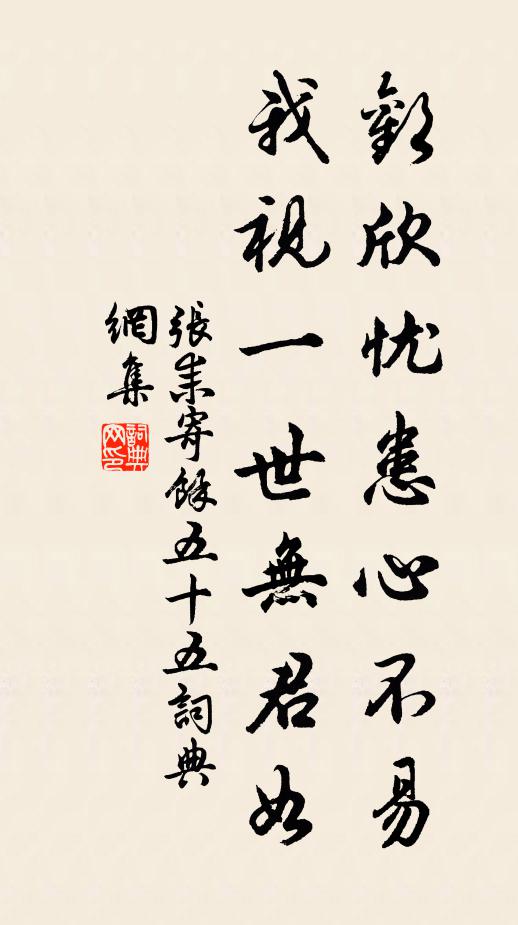 歡欣忧患心不易
我視一世無君如
張耒寄餘五十五詞典
網集
詞典
网印